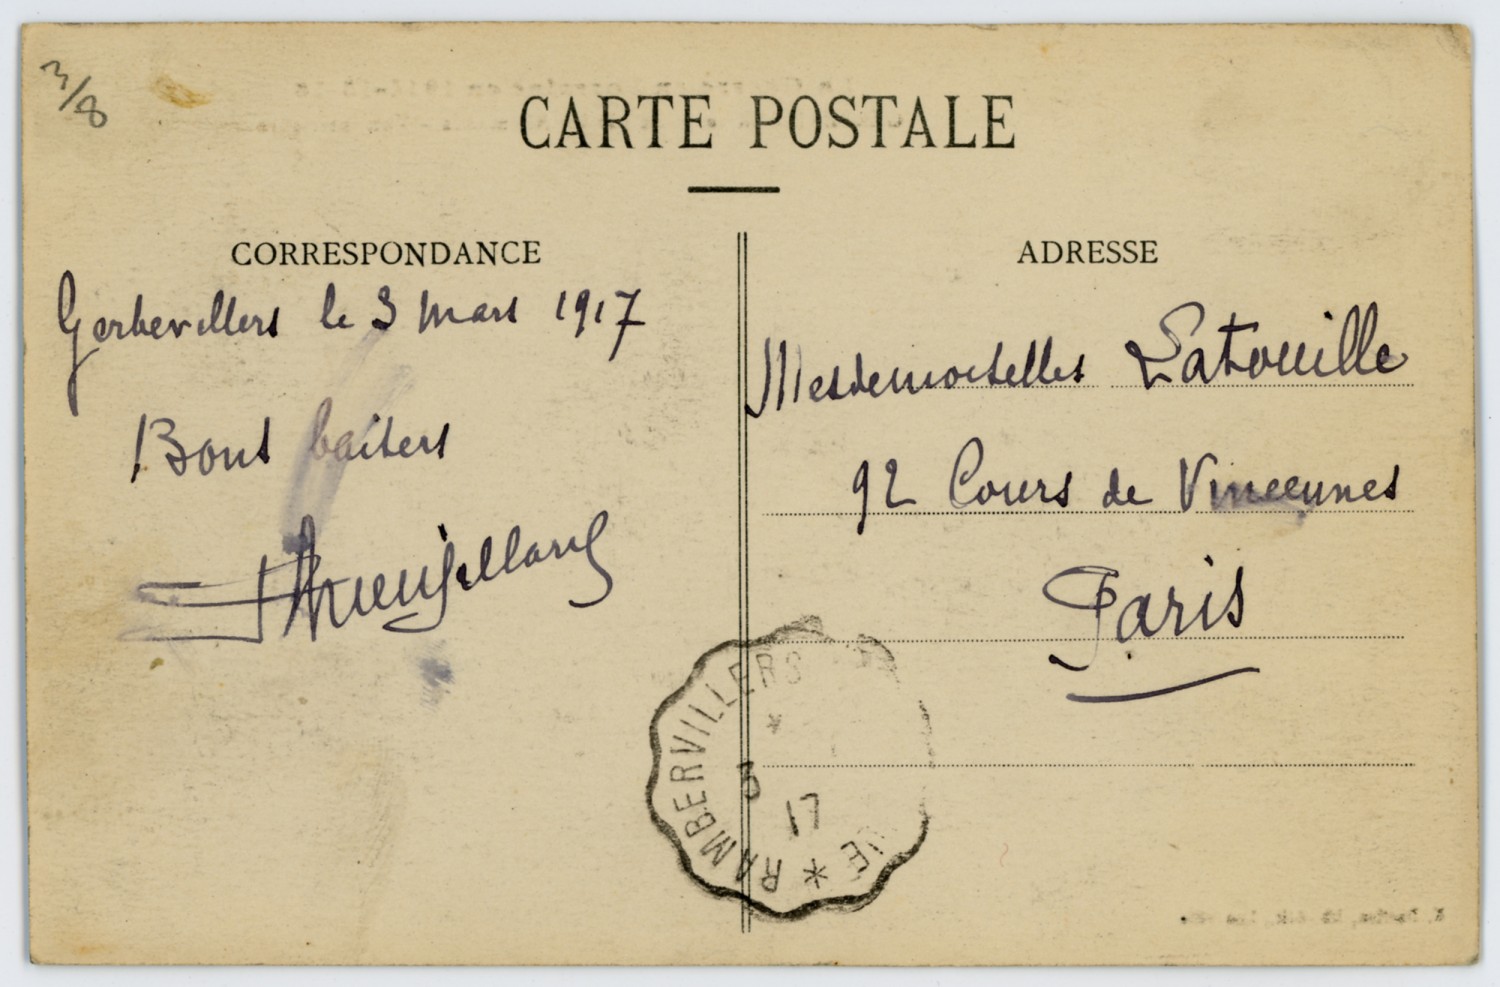 3/8
CARTE POSTALE
CORRESPONDANCE
Gerbevillers le 3 Mars 1917
Bons baisers
ADRESSE
Mesdemoiselles Latouille
92 Cours de Vincennes
Paris
RAMBERVILLERS
3
17